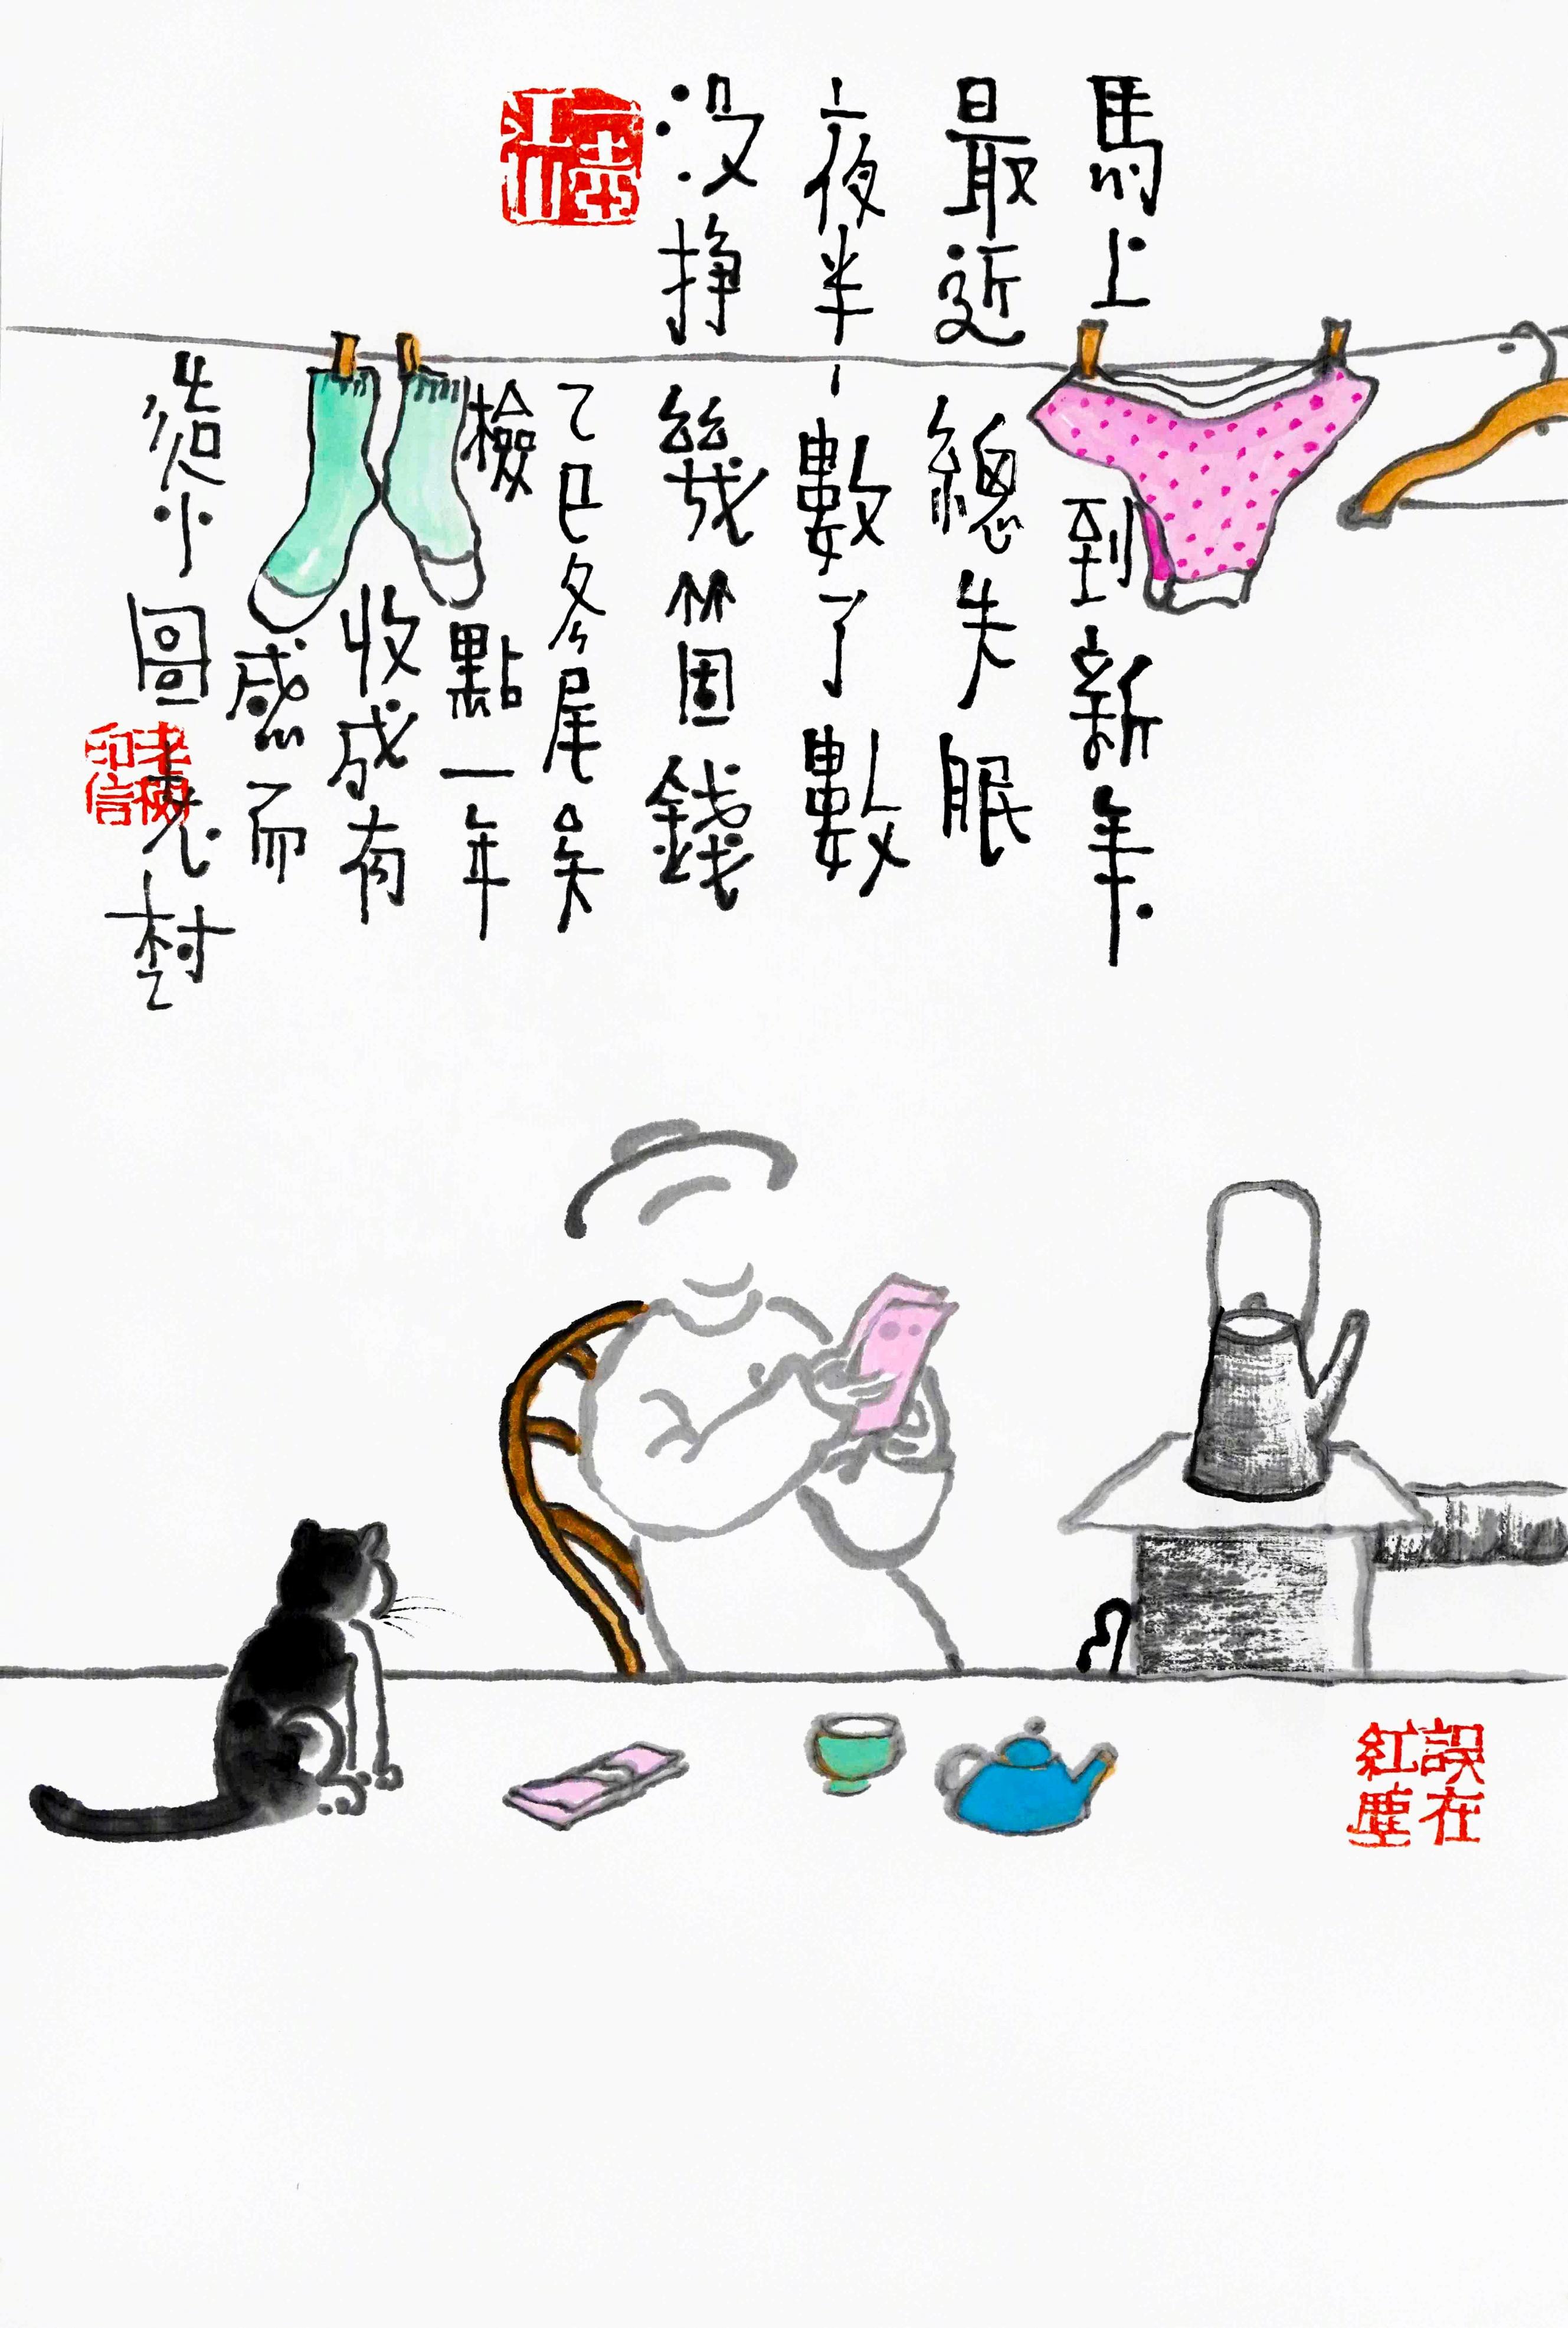 馬上到新年
最近總失眠
夜半數了數
没挣幾箇錢
乙巳冬尾矣
檢點一年
收成有
感而
造小圖老樹
老樹印信
誤在紅塵